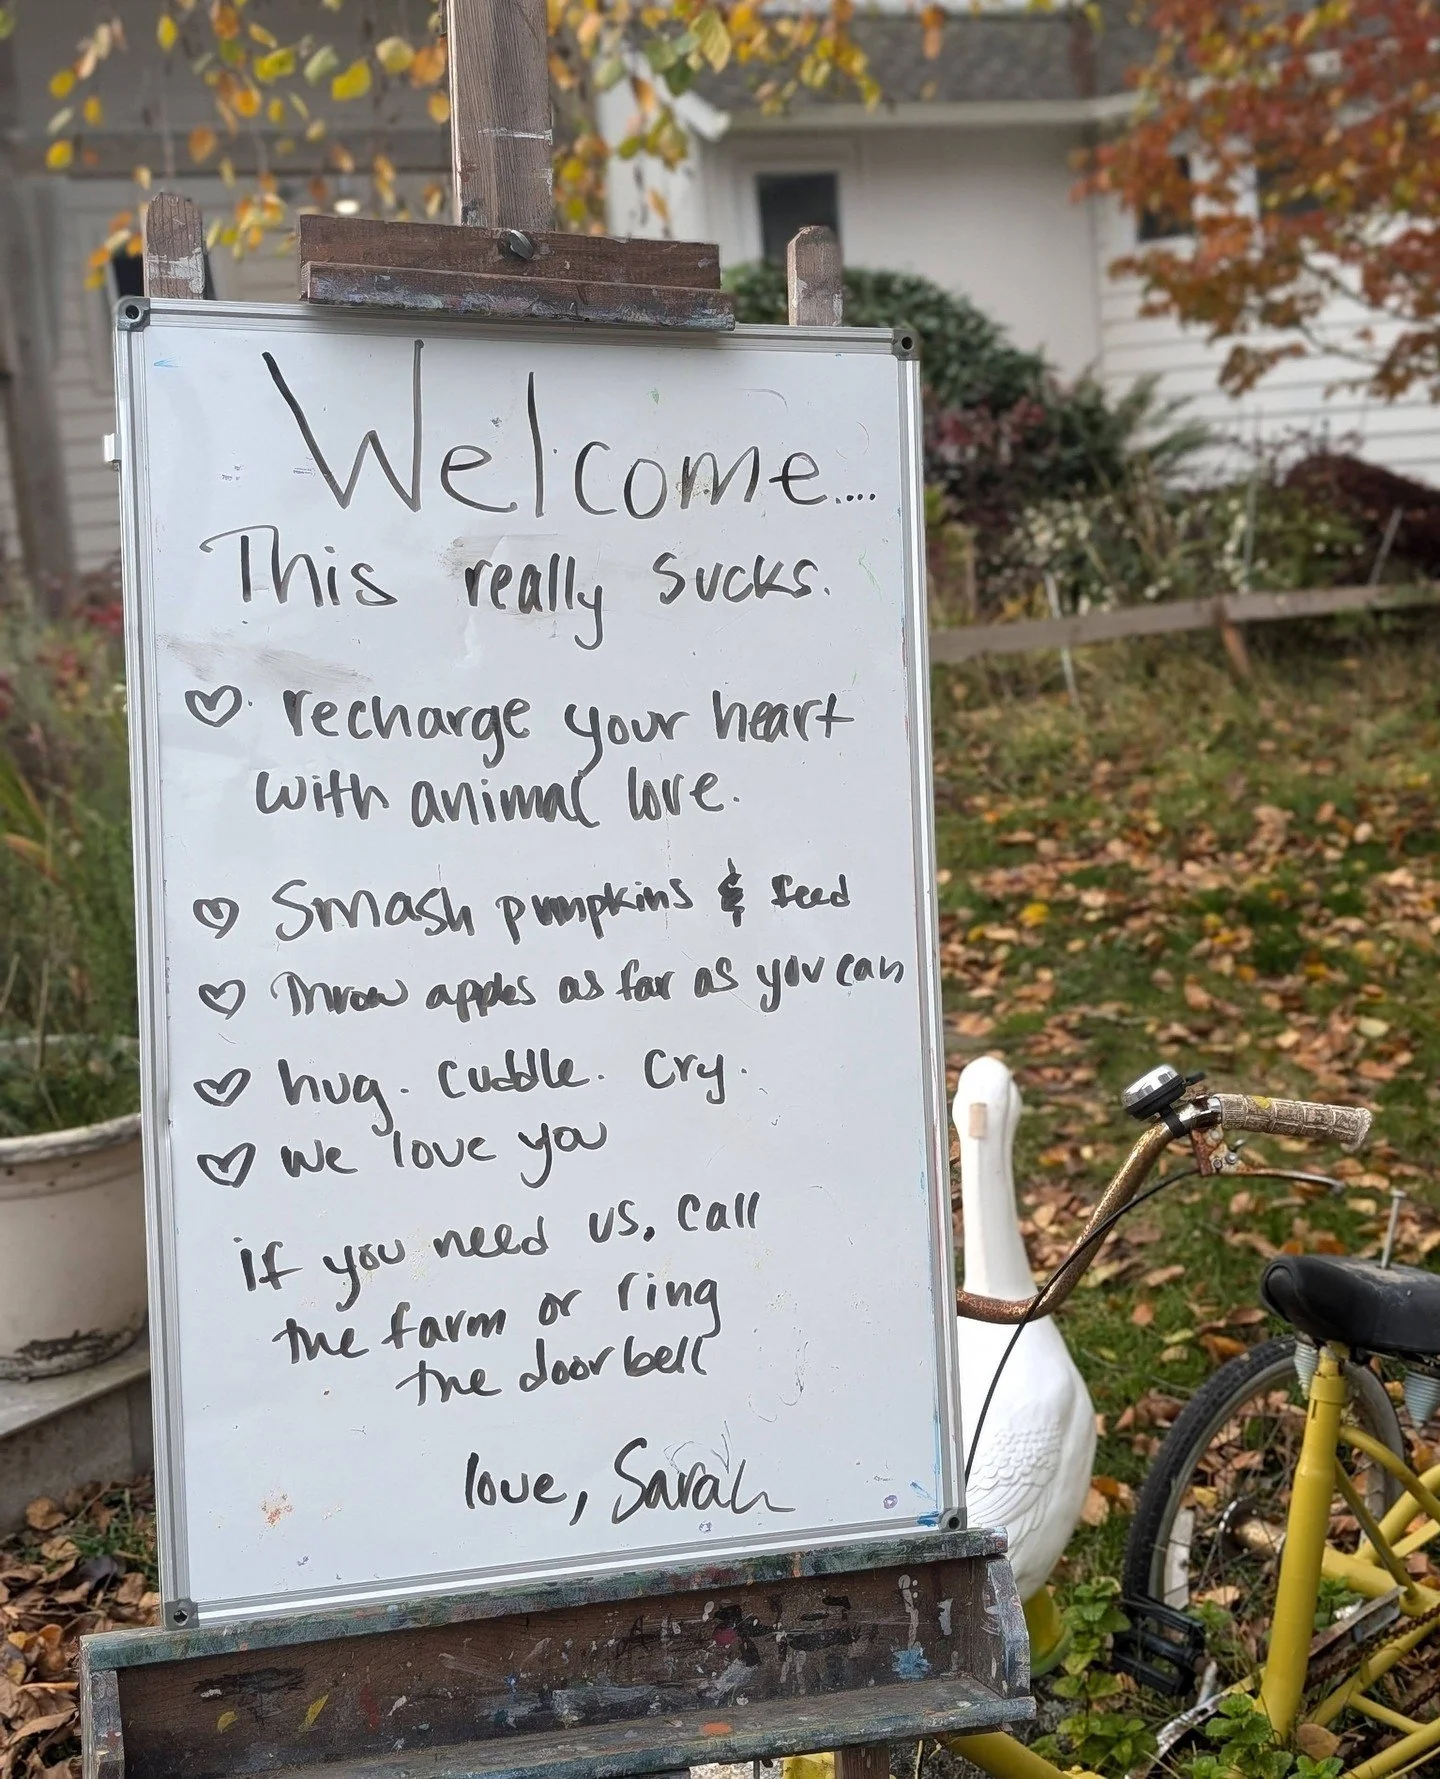 Welcome....
This really sucks.
♡ recharge your heart
with animal love.
♡ Smash pumpkins & feed
♡ Throw apples as far as you can
♡ hug. cuddle. cry.
♡ we love you
if you need us, call
the farm or ring
the doorbell
love, Sarah